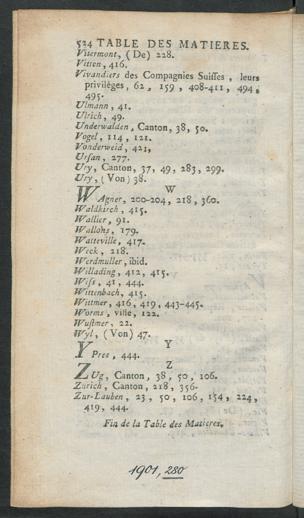 524 TABLE DES MATIERES.
Vitermont, (De) 228.
Vitten, 416.
Vivandiers des Compagnies Suisses, leurs
privilèges, 62, 159, 408-411, 494,
495.
Ulmann, 41.
Ulrich, 49.
Underwalden, Canton, 38, 50.
Vogel, 114, 121.
Vonderweid, 421,
Ursan, 277.
Ury, Canton, 37, 49, 283, 299.
Ury, (Von) 38.
W
WAgner, 200-204, 218, 360.
Waldkirch, 415.
Wallier, 91.
Wallons, 179.
Watteville, 417.
Weck, 218.
Werdmuller, ibid.
Willading, 412, 415.
Wiss, 41, 444.
Wittenbach, 415.
Wittmer, 416, 419, 443-445.
Worms, ville, 122.
Wustmer, 22.
Wyl, (Von) 47.
Y
YPres, 444.
Z
ZUg, Canton, 38, 50, 106.
Zurich, Canton, 218, 356.
Zur-Lauben, 23, 50, 106, 154, 224,
419, 444.
Fin de la Table des Matieres.
1901, 280